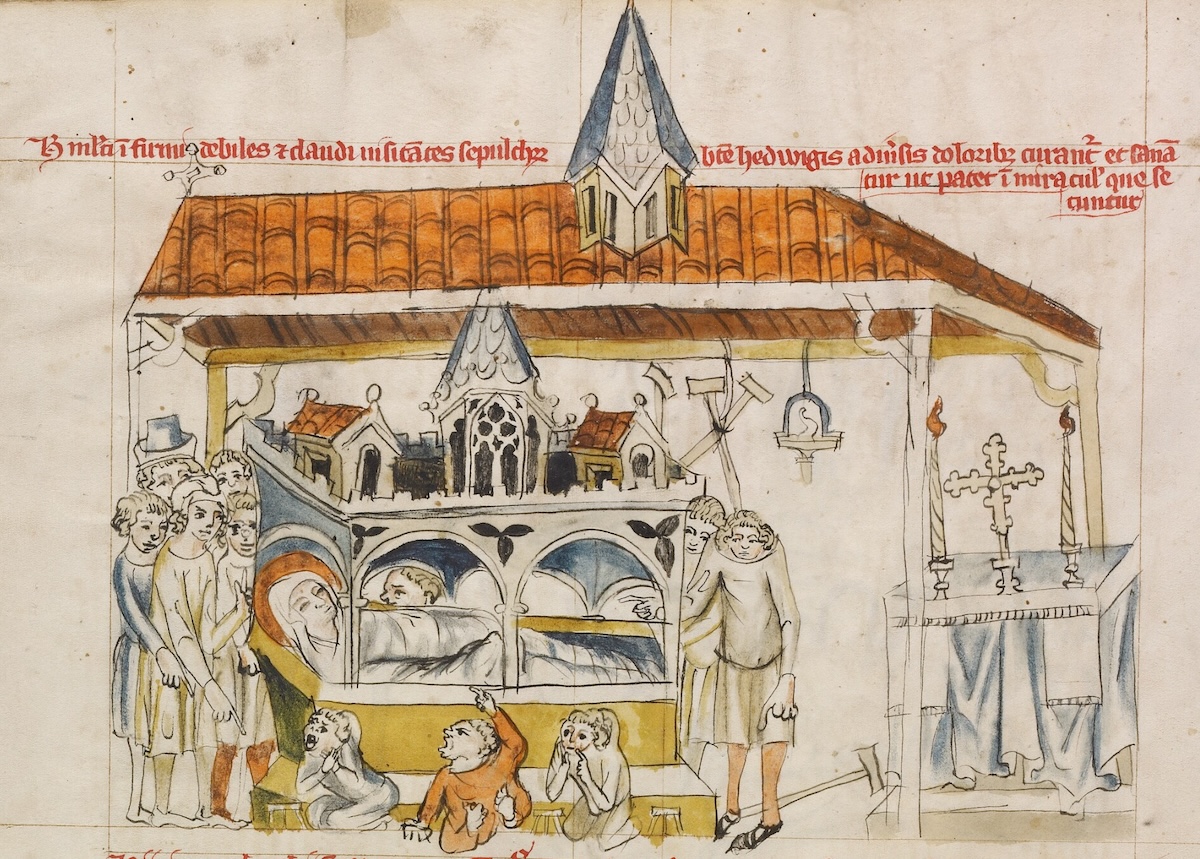 Hic multi infirmi debiles et claudi visitantes sepulchrum bte hedwigis a diversis doloribus curantur et sanan
tur ut patet in miraculis que se
cuntur